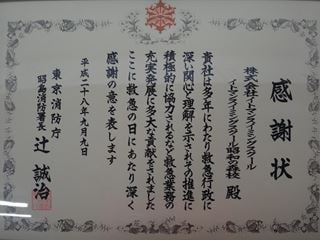 感謝状
株式会社イトマンスイミングスクール
イトマンスイミングスクール昭和の森 殿
貴社は多年にわたり救急行政に
深い関心と理解を示されその推進に
積極的に協力されるなど救急業務の
充実発展に多大な貢献をされました
ここに救急の日にあたり深く
感謝の意を表します
平成二十八年九月九日
東京消防庁
昭島消防署長 辻 誠治